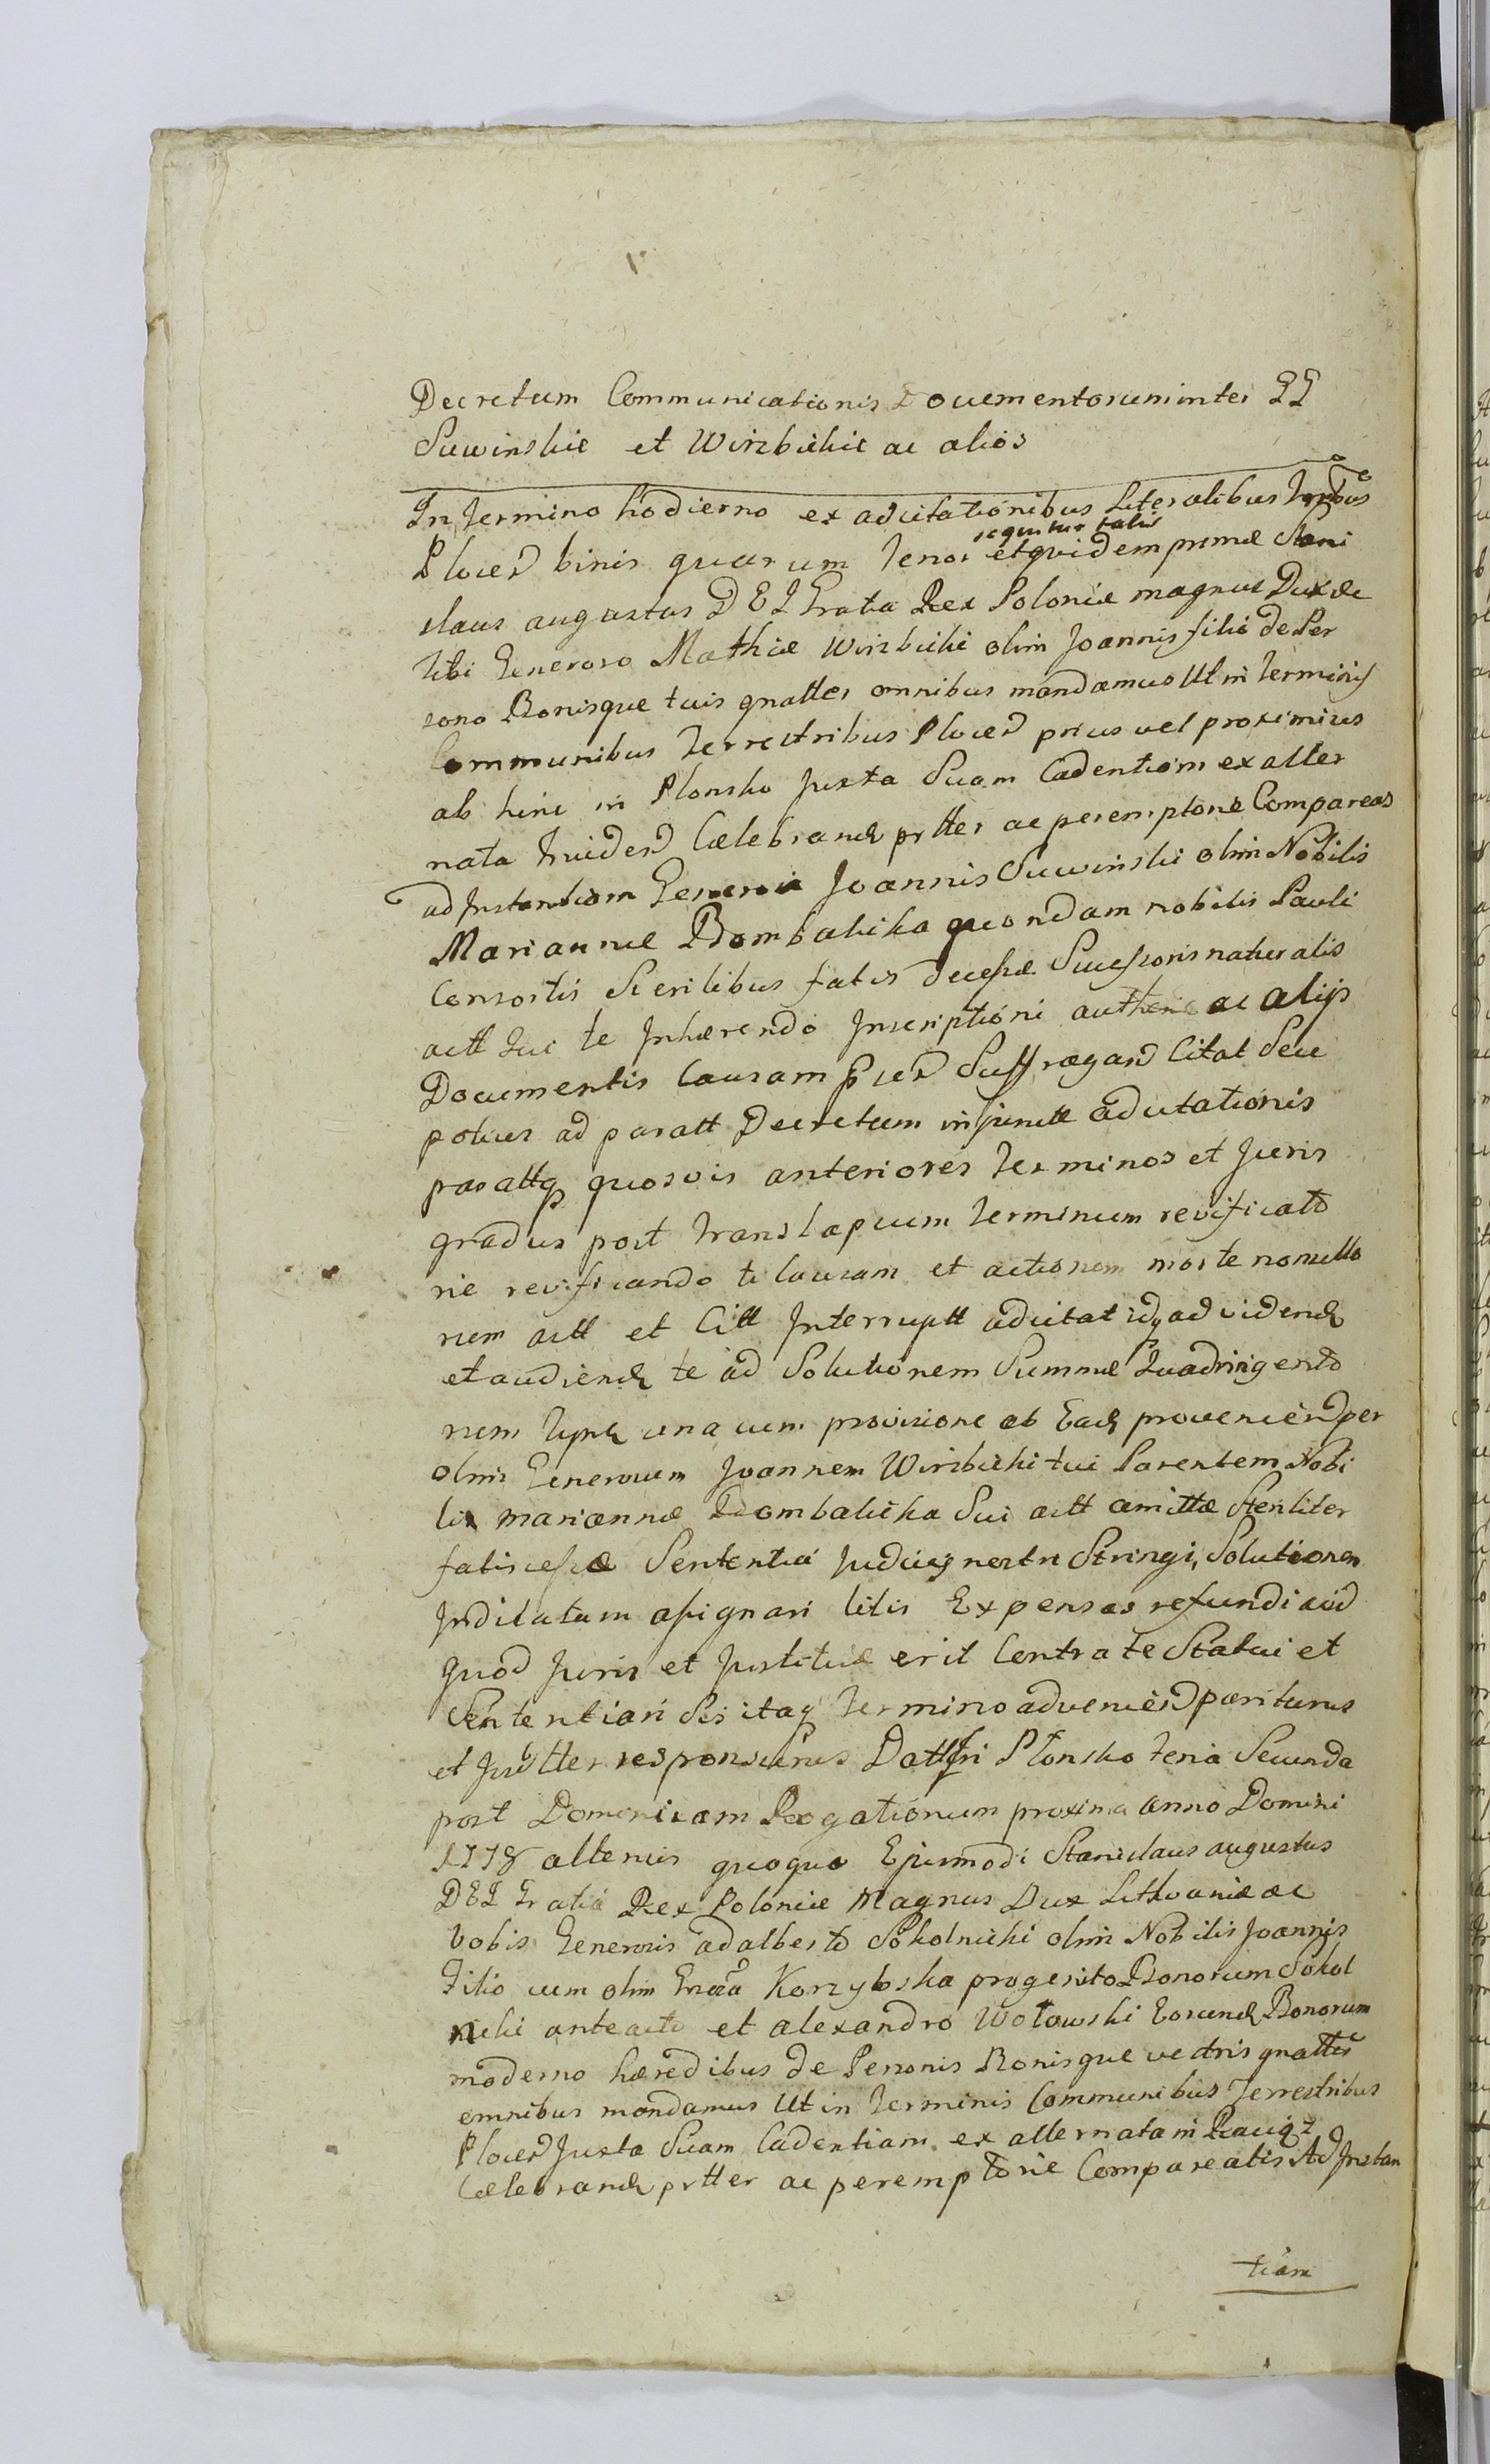 Decretum Communicationis Documentorum inter GG
Suwinskie et Wirzbickie ac alios
In Termino hodierno ex adcitationibus Literalibus
Plocen binis quarum Tenor sequitur talis et quidem primæ Stani
slaus augustus DEI Gratia Rex Poloniæ magnus Dux &c
Tibi Generoso Mathiæ Wirzbicki olim Joannis filio de Per
sona Bonisque tuis gnatter omnibus mandamus Ut in Terminis
Communibus Terrestribus Plocen prius vel proximius
ab hinc in Plonsko Juxta Suam Cadentiam ex alter
nata Cælebrand prtter ac peremptorie Compareas
ad Instantiam Generosi Joannis Suwinski olim Nobilis
Mariannæ Bombalicka quondam nobilis Pauli
Consortis Sterilibus fatis decessæ Sucessoris naturalis
actt Qui te Inhærendo Inscriptioni authen ac alijs
Documentis Causam Suffragan Citat Seu
potius ad paratt Decretum injunctt adcitationis
paratt quosvis anteriores Terminos et Juris
gradus post translapsum Terminum reificatt
rie reificando te Causam et actionem morte nonullo
rum actt et Citt Interruptt adcitat idq ad vidend
et audiend te ad Solutionem Summæ Quadringento
rum Tynf una cum provisione ab Ead provenien per
olim Generosum Joannem Wirzbicki tui Parentem Nobi
lis Mariannæ Bombalicka Sui actt amittæ Steriliter
fatiscesæ Sententia Judicij nostri Stringi, Solutionem
Indilatam assignari litis Expensas refundi aliud
quod Juris et Justitiæ erit Contra te Statui et
Sententiari Sis itaq Termino advenien pariturus
et Judtter responsurus Datt in Plonsko feria Secunda
post Dominicam Rogationum proxima anno Domini
1778 alterius quoque Ejusmodi Stanislaus augustus
DEI Gratia Rex Poloniæ Magnus Dux Lithvaniæ &c
Vobis Generosis adalberto Sokolnicki olim Nobilis Joannis
Filio cum olim Korzybska progenito Bonorum Sokol
nicki anteacto et alexandro Wolowski Eorund Bonorum
moderno hæredibus de Personis Bonisque vestris gnatter
omnibus mandamus Ut in Terminis Communibus Terrestribus
Plocen Juxta Suam Cadentiam ex alternata in Raciąz
Cælebrand prtter ac peremptorie Compareatis Ad Instan
tiam